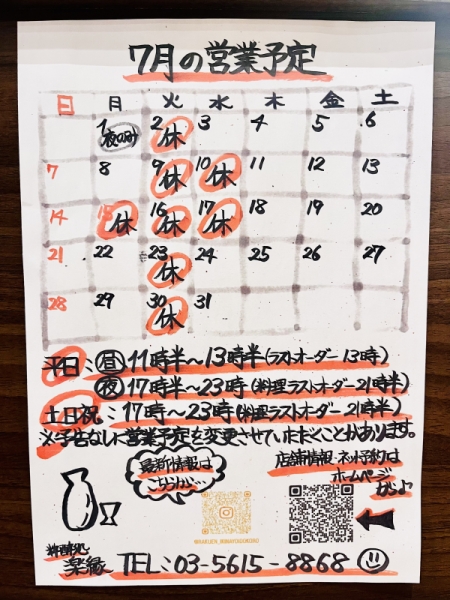 7月の営業予定
日 月 火 水 木 金 土
1 夜のみ 2 休 3 4 5 6
7 8 9 休 10 休 11 12 13
14 15 休 16 休 17 休 18 19 20
21 22 23 休 24 25 26 27
28 29 30 休 31
平日:昼 11時半〜13時半(ラストオーダー 13時)
夜 17時半〜23時(料理ラストオーダー 21時半)
土日祝:17時〜23時(料理ラストオーダー 21時半)
※予告なしに営業予定を変更させていただくことがあります。
最新情報は
こちらから…
店舗情報・ネット予約は
ホームページ
からよ
楽縁 TEL:03-5615-8868